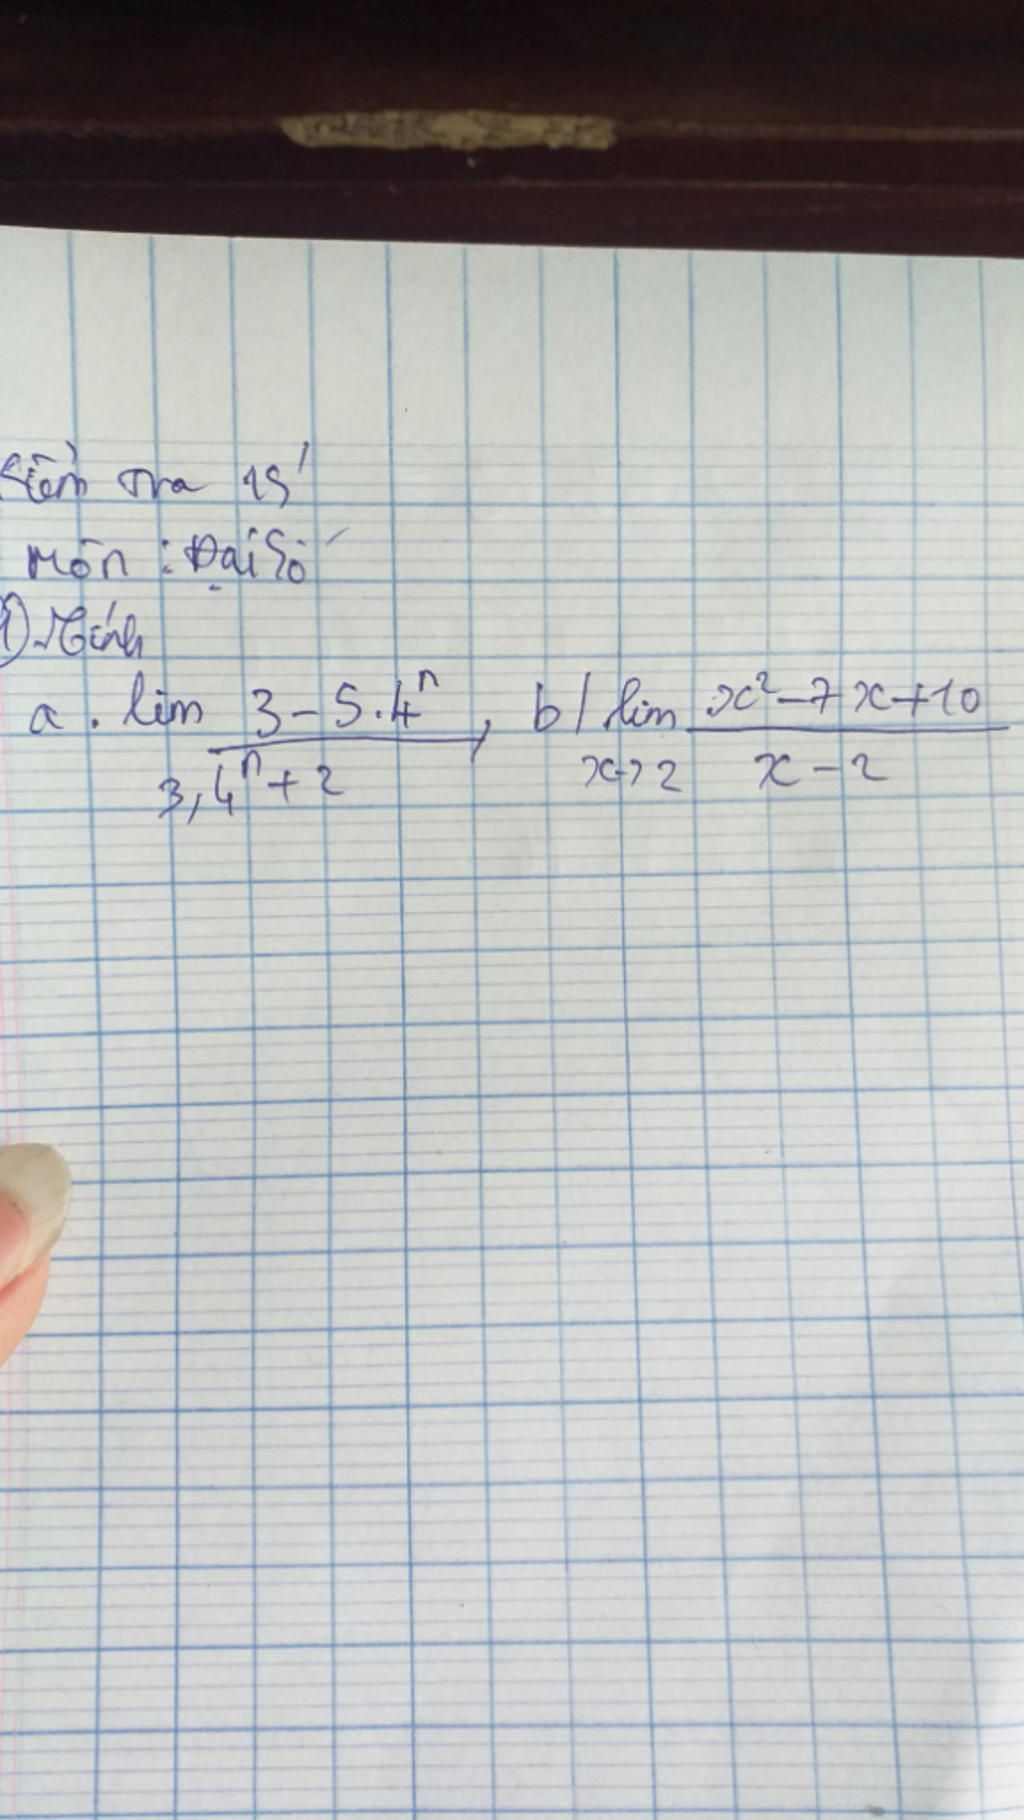 Kiểm tra 15'
Môn : Đại Số
1) Tính
a . lim (3 - 5.4^n)/(3,4^n + 2) , b/ lim x→2 (x² - 7x + 10)/(x - 2)